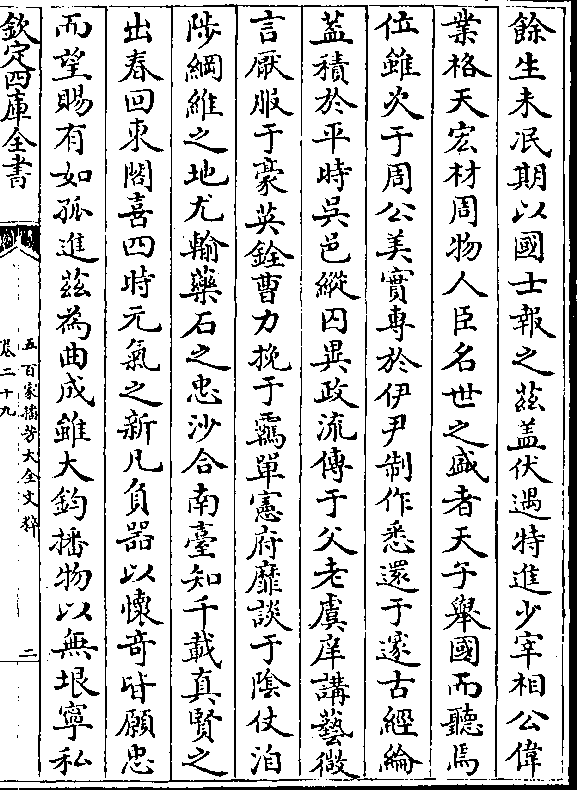 餘生未泯期以國士報之茲蓋伏遇特進少宰相公偉
業格天宏材周物人臣名世之盛者天子舉國而聽焉
位雖次于周公美實專於伊尹制作悉還于邃古經綸
蓋積於平時吳邑縱囚異政流傳于父老虞庠講藝微
言厭服于豪英銓曹力挽于羈單憲府靡談于陰仗洎
陟綱維之地尤輸藥石之忠沙合南臺知千載真賢之
出春回東閤喜四時元氣之新凡負器以懷奇皆願忠
而望賜有如孤進茲為曲成雖大鈞播物以無垠寧私
欽定四庫全書
五百家播芳大全文粹
卷二十九
二